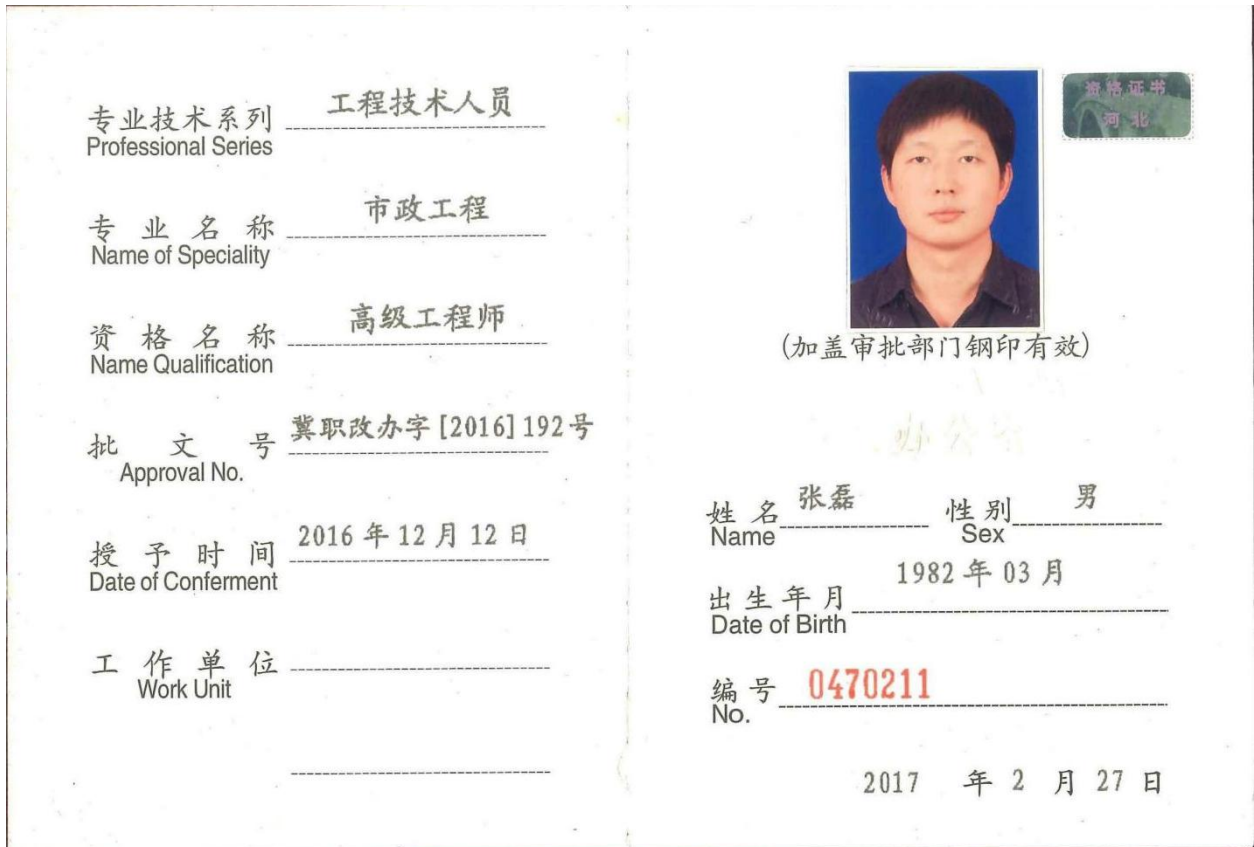 专业技术系列 工程技术人员
Professional Series
专业名称 市政工程
Name of Speciality
资格名称 高级工程师
Name Qualification
批文号 冀职改办字[2016]192号
Approval No.
授予时间 2016年12月12日
Date of Conferment
工作单位
Work Unit
资格证书
河北
(加盖审批部门钢印有效)
办公室
姓名 张磊 性别 男
Name Sex
1982年03月
出生年月
Date of Birth
编号 0470211
No.
2017 年 2 月 27 日